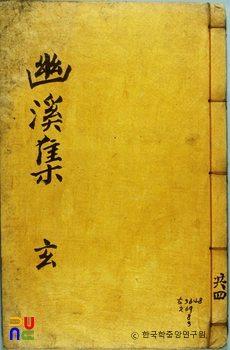 幽溪集 玄
共四
古3648
ⓒ 한국학중앙연구원